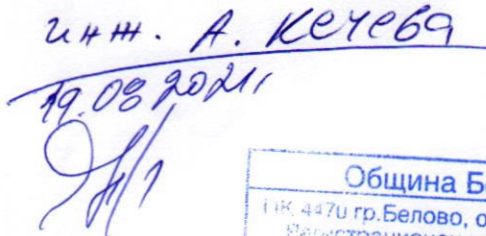 инж. А. Кечева
19.08.2021г
Община Б
ПК 4470 гр.Белово, о